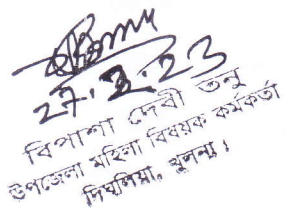 27.2.23
বিপাশা দেবী তনু
উপজেলা মহিলা বিষয়ক কর্মকর্তা
দিঘলিয়া, খুলনা।